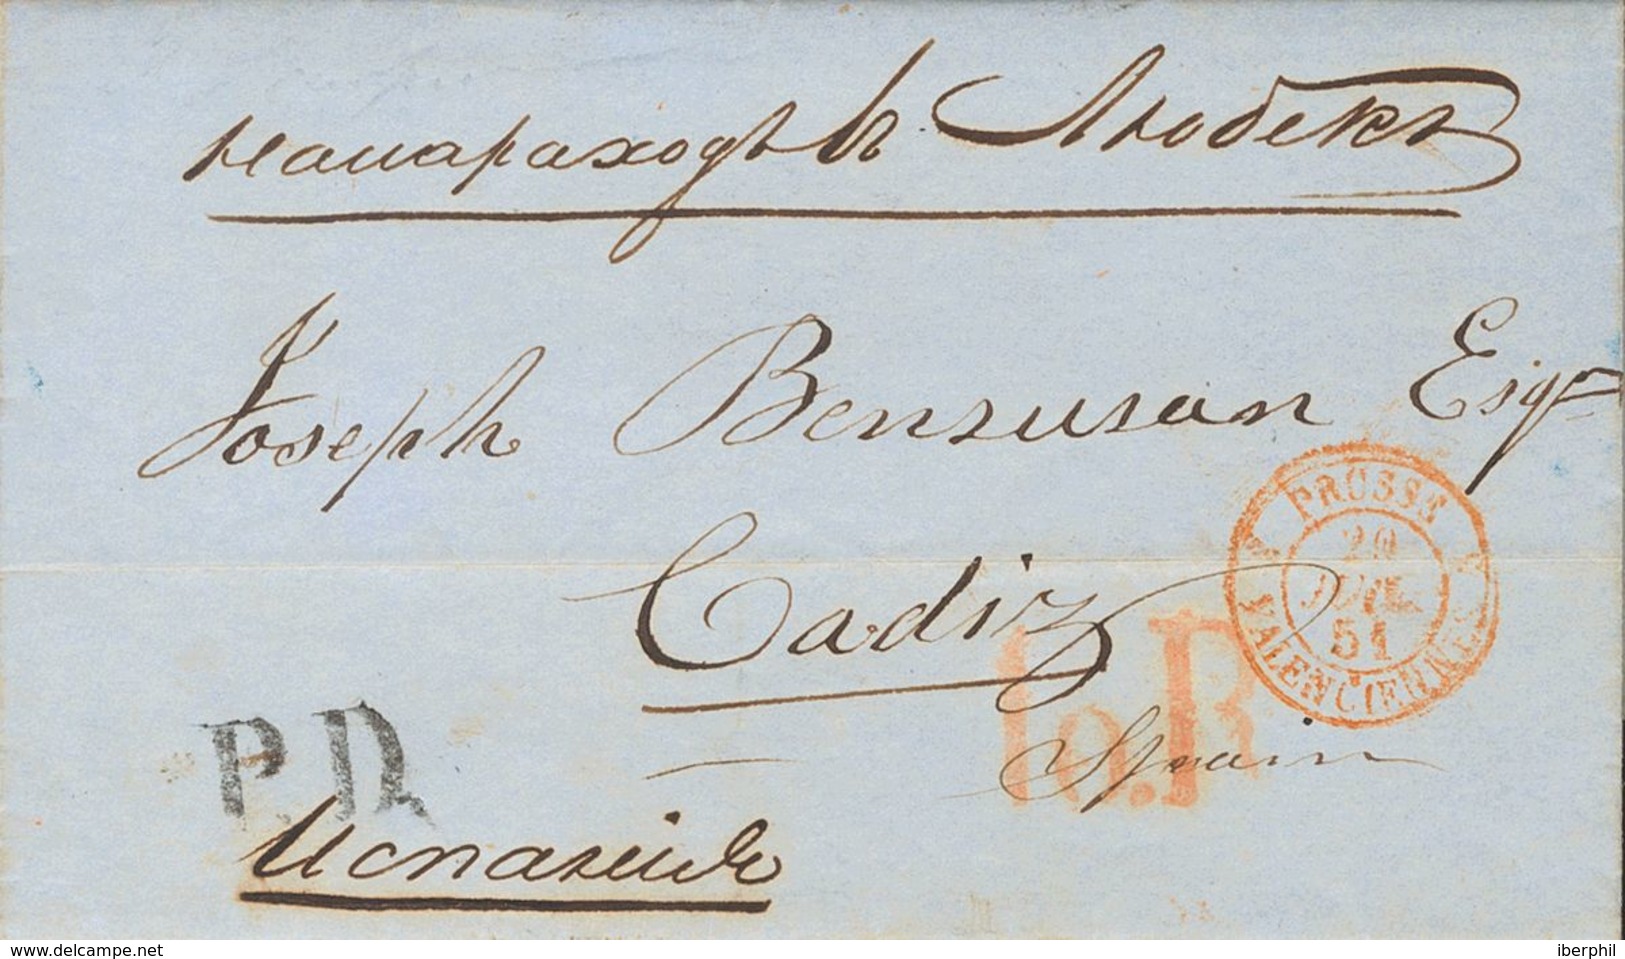 на пароходъ въ Любекъ
Joseph Bensusan Esqr
Cadiz
PRUSSE
20
JUIL.
51
VALENCIENNES
10.R
P.D.
Spain
Испанію
www.delcampe.net
iberphil